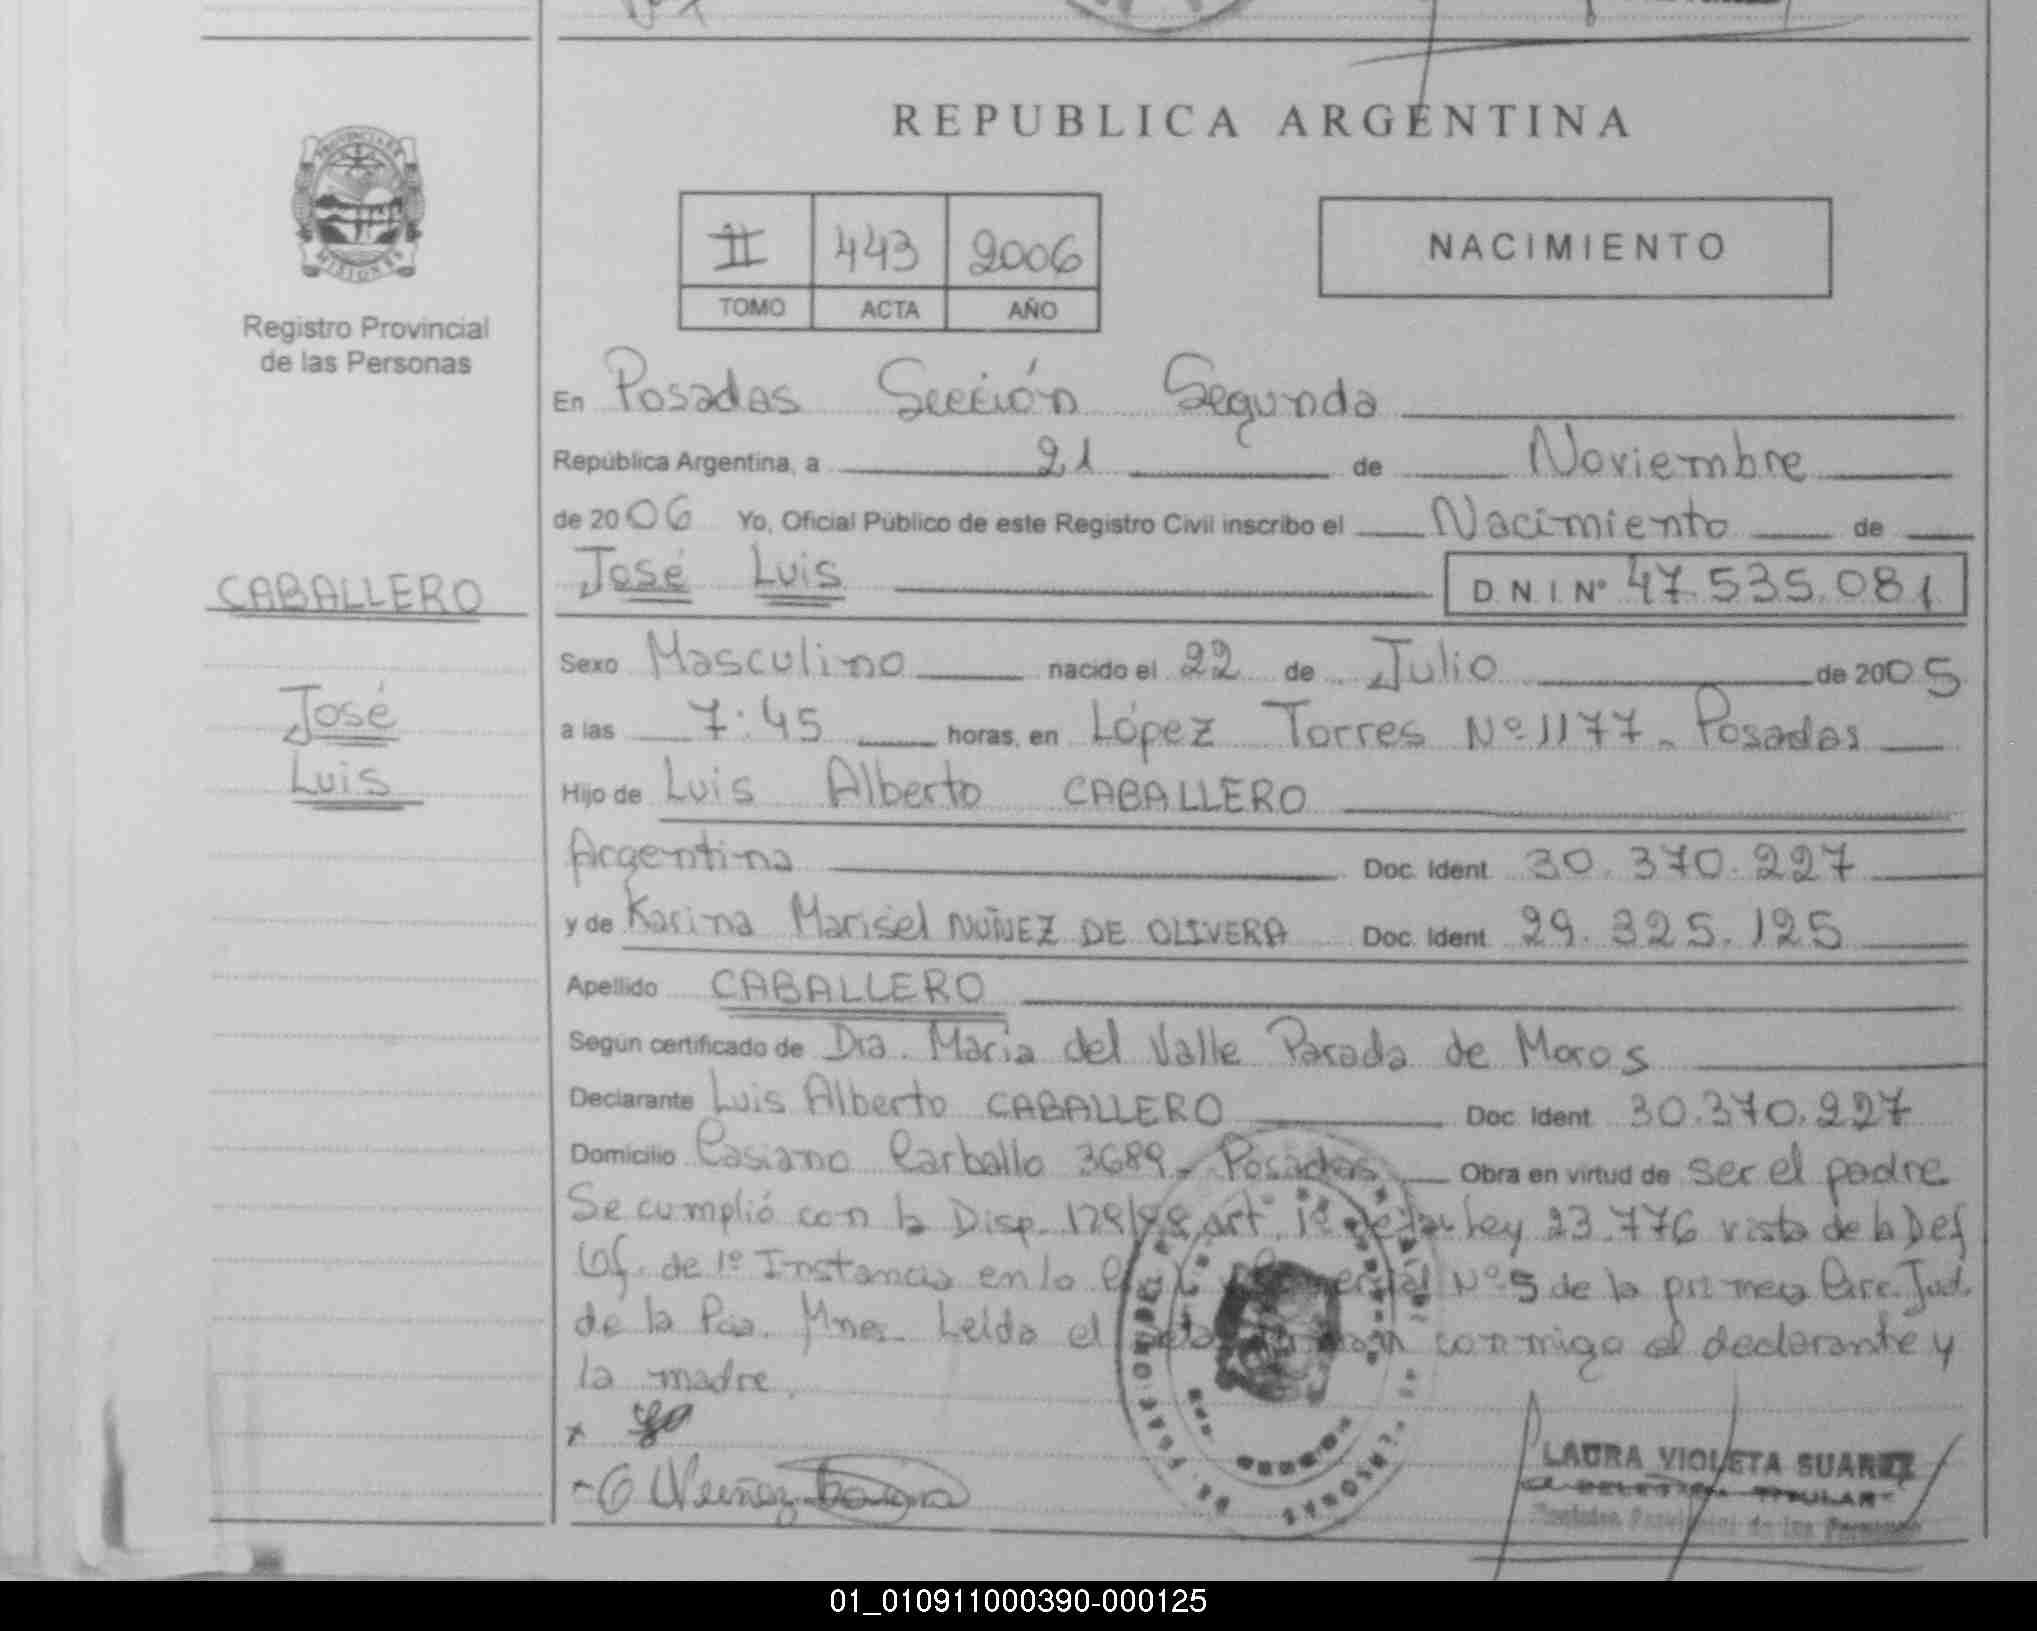 REPUBLICA ARGENTINA
PROVINCIA DE MISIONES
Registro Provincial
de las Personas
II 443 2006
TOMO ACTA AÑO
NACIMIENTO
En Posadas Sección Segunda
República Argentina, a 21 de Noviembre
de 2006 Yo, Oficial Público de este Registro Civil inscribo el Nacimiento de
José Luis D.N.I. Nº 47.535.081
CABALLERO
José
Luis
Sexo Masculino nacido el 22 de Julio de 2005
a las 7:45 horas, en López Torres Nº 1177- Posadas
Hijo de Luis Alberto CABALLERO
Argentina Doc. Ident. 30.370.227
y de Karina Marisel NÚÑEZ DE OLIVERA Doc. Ident. 29.325.125
Apellido CABALLERO
Según certificado de Dra. Maria del Valle Parada de Moros
Declarante Luis Alberto CABALLERO Doc. Ident. 30.370.227
Domicilio Casiano Carballo 3689- Posadas Obra en virtud de ser el padre
Se cumplió con la Disp. art. 1º Ley 23.776 vista de la Def
Of. de 1º Instancia en lo Nº 5 de la primera Circ. Jud.
de la Pcia. Mnes. Leída el conmigo el declarante y
la madre.
x
Nuñez
LAURA VIOLETA SUAREZ
TITULAR
Registro Provincial de las Personas
01_010911000390-000125